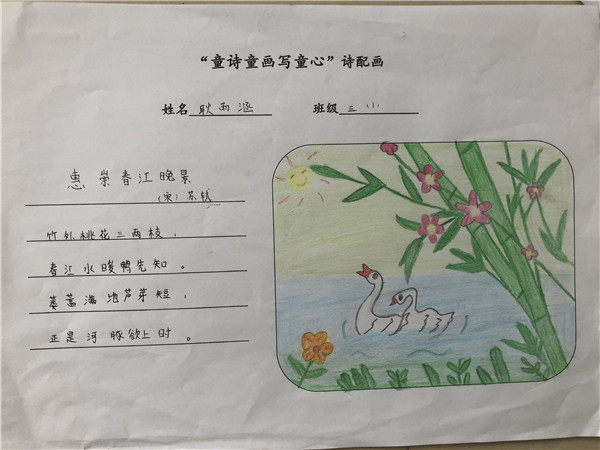 “童诗童画写童心”诗配画
姓名 耿雨涵 班级 三小
惠崇春江晚景
(宋) 苏轼
竹外桃花三两枝,
春江水暖鸭先知。
蒌蒿满地芦芽短,
正是河豚欲上时。